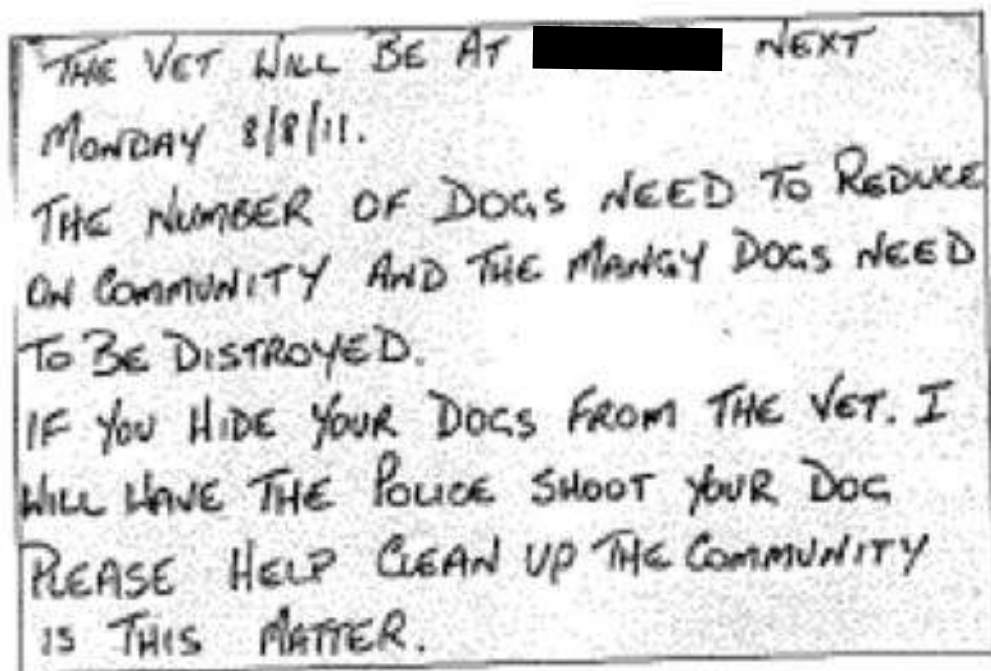 THE VET WILL BE AT NEXT
MONDAY 8/8/11.
THE NUMBER OF DOGS NEED TO REDUCE
ON COMMUNITY AND THE MANGY DOGS NEED
TO BE DISTROYED.
IF YOU HIDE YOUR DOGS FROM THE VET. I
WILL HAVE THE POLICE SHOOT YOUR DOG
PLEASE HELP CLEAN UP THE COMMUNITY
IS THIS MATTER.